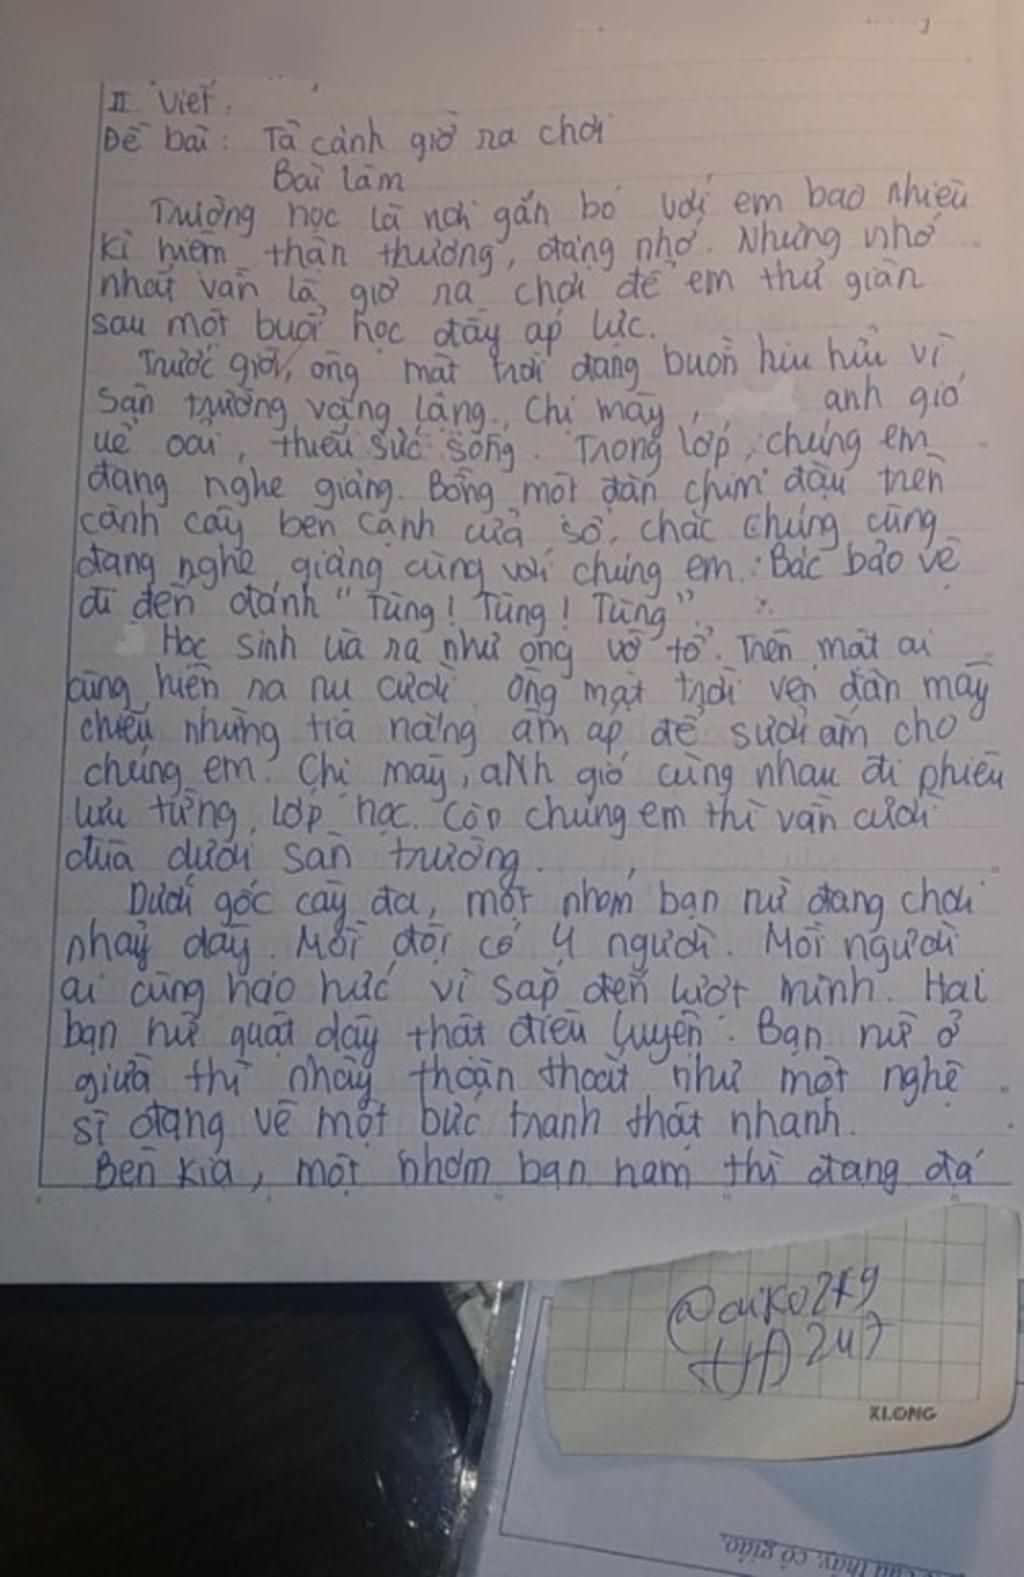 II. Viết:
Đề bài: Tả cảnh giờ ra chơi
Bài làm
Trường học là nơi gắn bó với em bao nhiêu
kỉ niệm thân thương, đáng nhớ. Nhưng nhớ
nhất vẫn là giờ ra chơi để em thư giãn
sau một buổi học đầy áp lực.
Trước giờ, ông mặt trời đang buồn hiu hiu vì
sân trường vắng lặng. Chị mây, anh gió
uể oải, thiếu sức sống. Trong lớp, chúng em
đang nghe giảng. Bỗng một đàn chim đậu trên
cành cây bên cạnh cửa sổ, chắc chúng cũng
đang nghe giảng cùng với chúng em. Bác bảo vệ
đi đến đánh "Tùng! Tùng! Tùng".
Học sinh ùa ra như ong vỡ tổ. Trên mặt ai
cũng hiện ra nụ cười. Ông mặt trời vén đàn mây
chiếu những tia nắng ấm áp để sưởi ấm cho
chúng em. Chị mây, aNh gió cùng nhau đi phiêu
lưu từng lớp học. Còn chúng em thì vẫn cười
đùa dưới sân trường.
Dưới gốc cây đa, một nhóm bạn nữ đang chơi
nhảy dây. Mỗi đội có 4 người. Mỗi người
ai cũng háo hức vì sắp đến lượt mình. Hai
bạn nữ quật dây thật điêu luyện. Bạn nữ ở
giữa thì nhảy thoăn thoắt như một nghệ
sĩ đang vẽ một bức tranh thật nhanh.
Bên kia, một nhóm bạn nam thì đang đá
247
XLONG
của thầy, cô giáo,